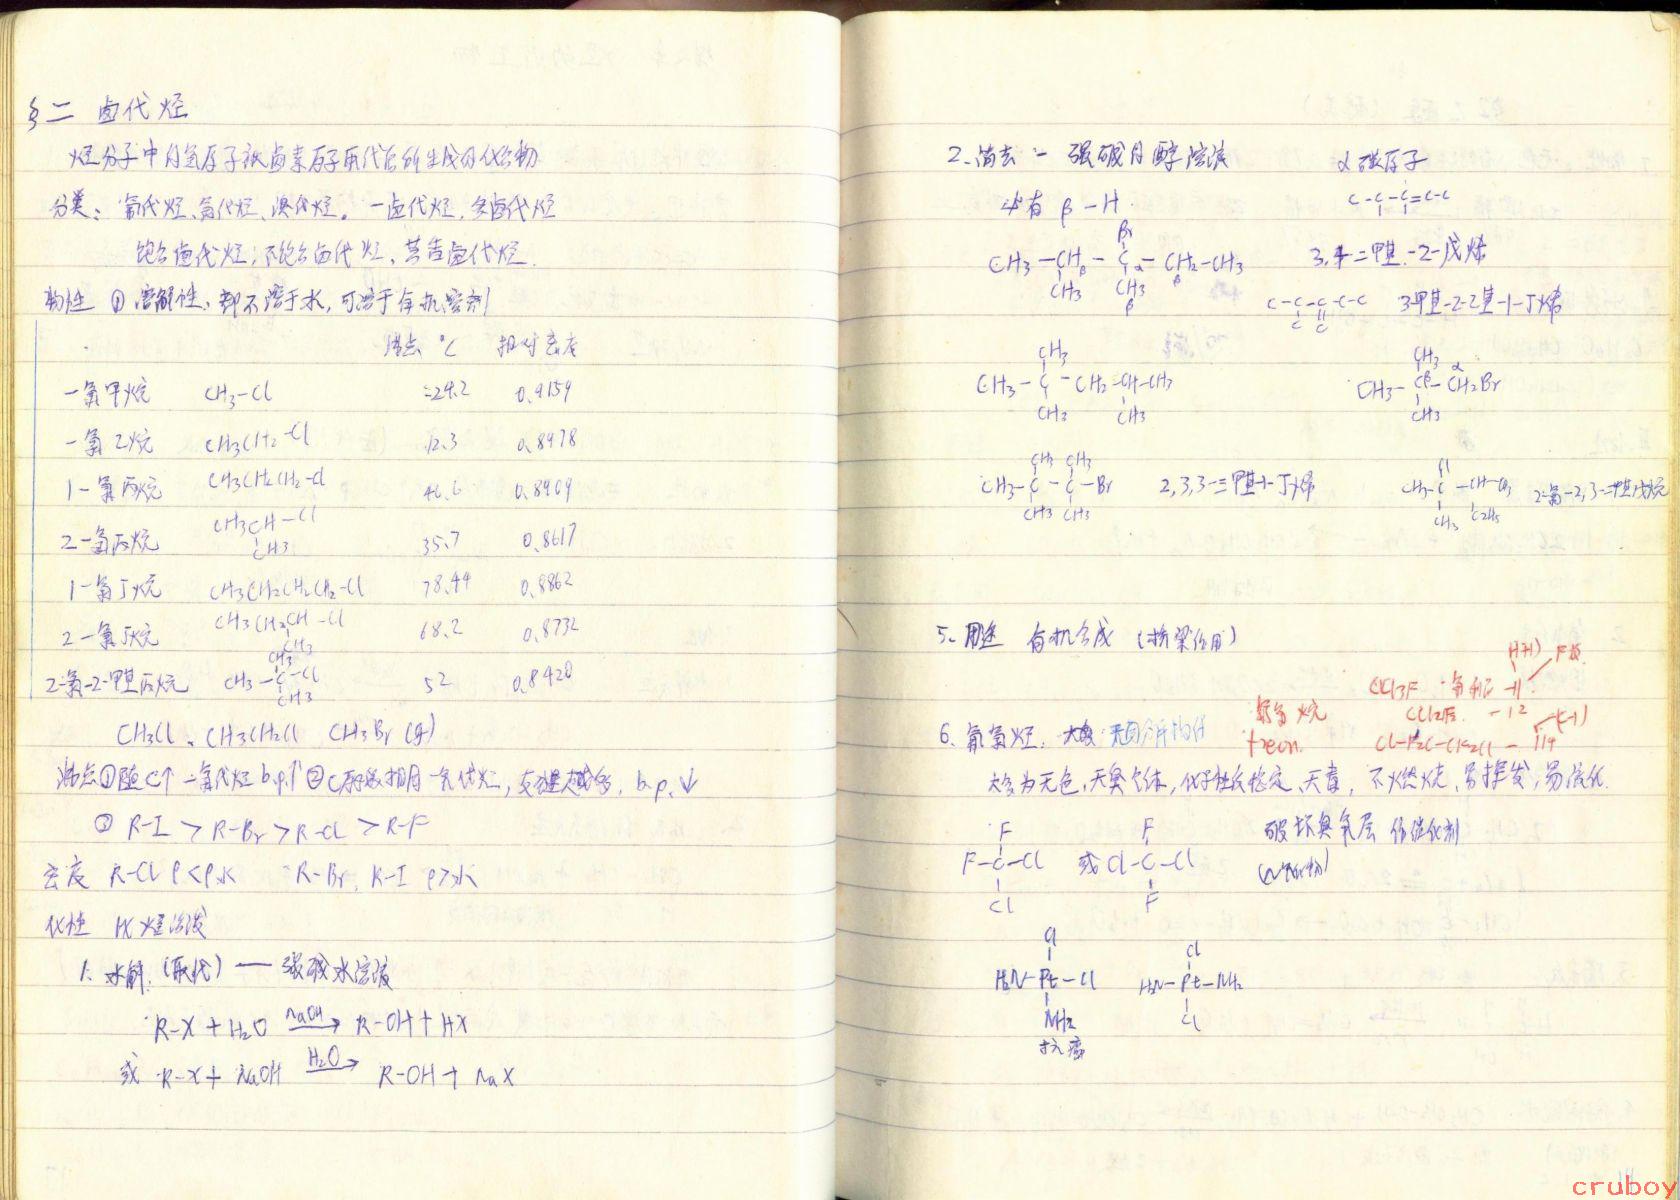 §二 卤代烃
烃分子中的氢原子被卤素原子取代后所生成的化合物
分类: 氟代烃、氯代烃、溴代烃。一卤代烃、多卤代烃
饱和卤代烃;不饱和卤代烃、芳香卤代烃.
物性 ① 溶解性、都不溶于水,可溶于有机溶剂
沸点℃ 相对密度
一氯甲烷 CH3-Cl -24.2 0.9159
一氯乙烷 CH3CH2-Cl 12.3 0.8978
1-氯丙烷 CH3CH2CH2-Cl 46.6 0.8909
2-氯丙烷 CH3CH-Cl CH3 35.7 0.8617
1-氯丁烷 CH3CH2CH2CH2-Cl 78.44 0.8862
2-氯丁烷 CH3CH2CH-Cl CH3 68.2 0.8732
2-氯-2-甲基丙烷 CH3-C-Cl CH3 CH3 52 0.8420
CH3Cl、CH3CH2Cl CH3Br (g)
沸点①随C↑ 一氯代烃 b.p.↑ ②C原子数相同一氯代烃,支链越多, b.p.↓
③ R-I > R-Br > R-Cl > R-F
密度 R-Cl ρ<ρ水 R-Br、R-I ρ>水
化性 比烃活泼
1. 水解.(取代) — 强碱水溶液
R-X + H2O NaOH→ R-OH + HX
或 R-X + NaOH H2O→ R-OH + NaX
2、消去 — 强碱的醇溶液 α碳原子
含有 β-H C-C-C=C-C
Br
CH3-CHβ-Cα-CH2β-CH3 3,4-二甲基-2-戊烯
CH3 CH3 β
C-C-C-C-C C C 3-甲基-2-乙基-1-丁烯
CH3 CH3
CH3-C-CH2-CH-CH3 CH3-Cβ-CH2Br α
CH3 CH3 CH3
CH3 CH3 Cl
CH3-C-C-Br 2,3,3-三甲基-1-丁烯 CH3-C-CH-CH3 2-氯-2,3-二甲基戊烷
CH3 CH3 CH3 C2H5
5、用途 有机合成 (桥梁作用)
CCl3F 氟利昂-11 (+1) F数
氟氯烷 CCl2F2 -12
freon. Cl-F2C-CF2Cl-114 (-1)
6、氟氯烃.
大多为无色,无臭气体,化学性质稳定、无毒,不燃烧,易挥发,易液化.
F F 破坏臭氧层 作催化剂
F-C-Cl 或 Cl-C-Cl
Cl F
Cl Cl
H2N-Pt-Cl H2N-Pt-NH2
NH2 Cl
抗癌
cruboy